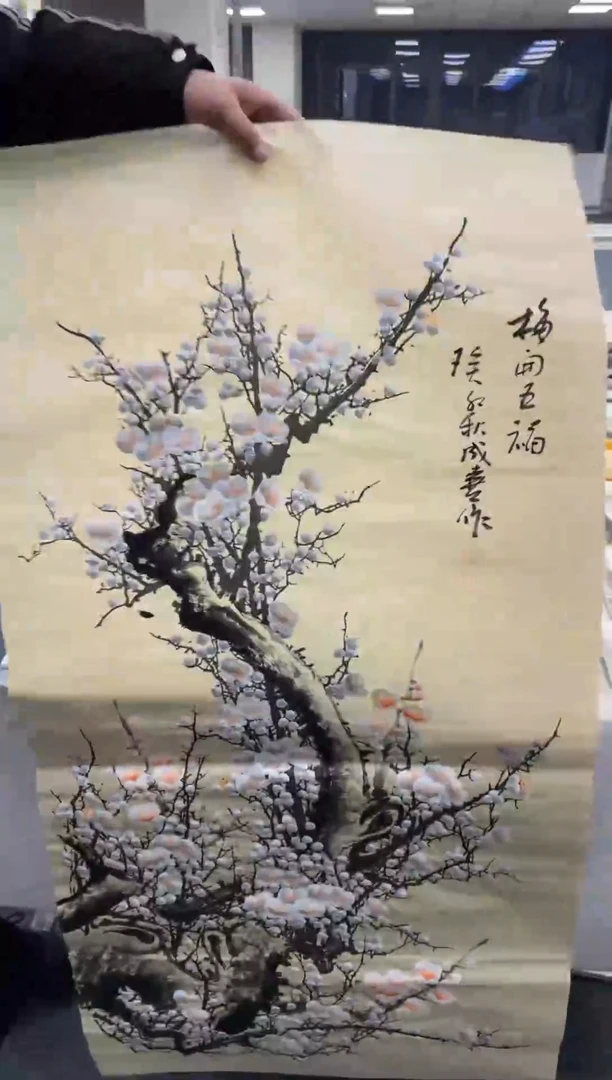 梅开五福
癸卯秋成喜作